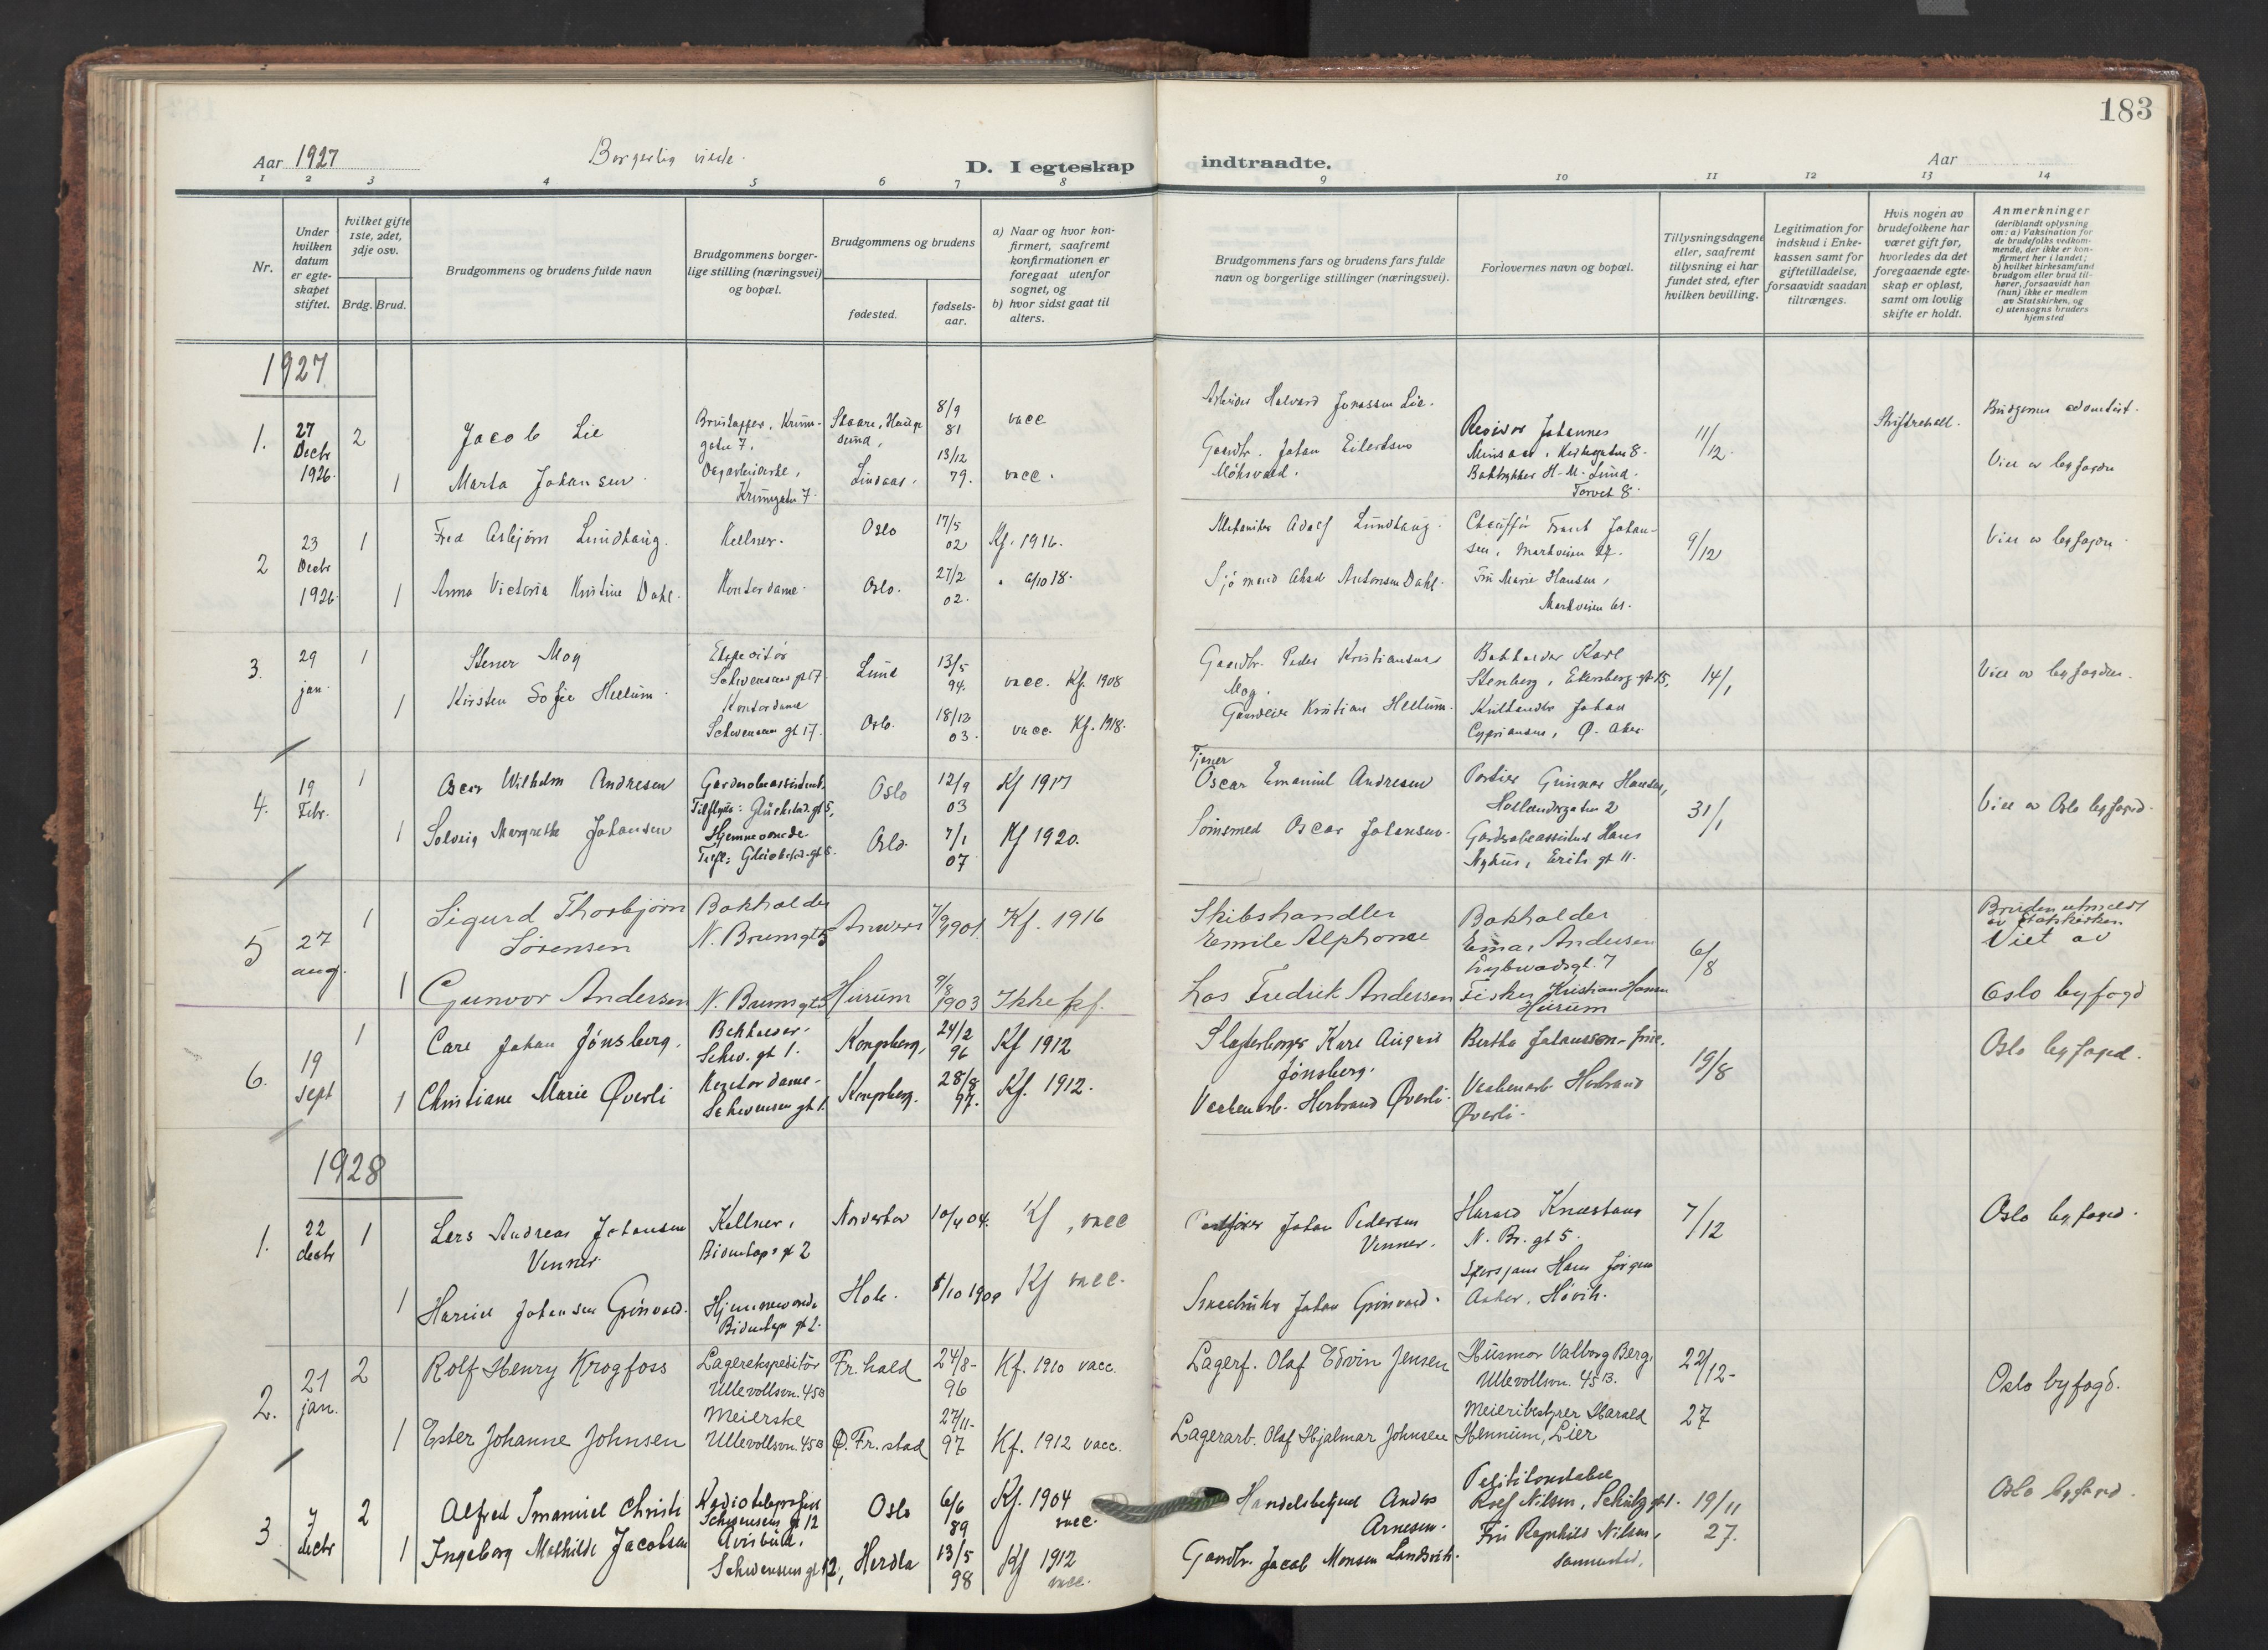 183
Aar 1927
Borgerlig viede.
D. I egteskap
indtraadte.
Aar
1 2 3 4 5 6 7 8 9 10 11 12 13 14
Nr.
Under
hvilken
datum
er egte-
skapet
stiftet.
hvilket gifte
1ste, 2det,
3dje osv.
Brdg. Brud.
Brudgommens og brudens fulde navn
Brudgommens borger-
lige stilling (næringsvei)
og bopæl.
Brudgommens og brudens
fødested.
fødsels-
aar.
a) Naar og hvor kon-
firmert, saafremt
konfirmationen er
foregaat utenfor
sognet, og
b) hvor sidst gaat til
alters.
Brudgommens fars og brudens fars fulde
navn og borgerlige stillinger (næringsvei).
Forlovernes navn og bopæl.
Tillysningsdagene
eller, saafremt
tillysning ei har
fundet sted, efter
hvilken bevilling.
Legitimation for
indskud i Enke-
kassen samt for
giftetilladelse,
forsaavidt saadan
tiltrænges.
Hvis nogen av
brudefolkene har
været gift før,
hvorledes da det
foregaaende egte-
skap er opløst,
samt om lovlig
skifte er holdt.
Anmerkninger
(deriblandt oplysning
om: a) Vaksination for
de brudefolks vedkom-
mende, der ikke er kon-
firmert her i landet;
b) hvilket kirkesamfund
brudgom eller brud til-
hører, forsaavidt han
(hun) ikke er medlem
av Statskirken, og
c) utensogns bruders
hjemsted
1927
1. 27 Decbr 1926 2 Jacob Lie 8/9 81 vacc
Arbeider Halvard Jonassen Lie. Revisor Johannes 11/12
1 Marta Johansen Krumgaten 7. Lindaas. 13/12 79. vacc.
Gaardbr. Johan Eilertsen
Torvet 8.
Viet av byfogden
2 23 Decbr 1926 1 Fred Asbjørn Lundhaug. Kellner. Oslo 17/5 02 Kf. 1916.
Mekaniker Adolf Lundhaug. Chauffør Frank Johan-
sen, Markveien 9/12 Viet av byfogden
1 Anna Victoria Kristine Dahl. Kontordame. Oslo. 27/2 02. 6/10 18.
Sjømand Antonsen Dahl. Fru Marie Hansen,
Markveien 61.
3. 29 jan. 1 Stener Moy Ekspeditør Schwensens gt 17. Lund 13/5 94. vacc. Kf. 1908
Gaardbr. Peder Kristiansen Moy. Bokholder Karl
Stenberg, 14/1 Viet av byfogden.
1 Kirsten Sofie Hellum. Kontordame Schwensens gt 17. Oslo. 18/12 03. vacc. Kf. 1918.
Kristian Hellum. Johan
Cyprianson, Ø. Aker
4. 19 Febr. 1 Oscar Wilhelm Andresen Garderobeassistent, Oslo 12/9 03 Kf 1917
Tjener
Oscar Emanuel Andresen Portier Gunnar Hansen,
Hollandsgaten 2 31/1 Viet av Oslo byfogd.
1 Solveig Margrethe Johansen Hjemmeværende Oslo. 7/1 07 Kf 1920.
Oscar Johansen. Garderobeassistent Hans
Nyhus, Eriks gt 11.
5 27 aug. 1 Sigurd Thorbjørn
Sørensen Bokholder
N. Brumgt 5 1901. Kf. 1916
Skibshandler
Emile Alphonse Bokholder
Andersen
Dybwadsgt. 7 6/8
Bruden utmeldt
av Statskirken
Viet av
1 Gunvor Andersen N. Brumgt 5 Hurum 9/8 1903 Ikke kf.
Los Fredrik Andersen Fisker Kristian Hansen
Hurum Oslo byfogd
6. 19 sept 1 Carl Johan Jønsberg. Bokholder. Schw. gt 1. Kongsberg, 24/2 96 Kf 1912
Karl August
Jønsberg. Bertha Johansson, frue. 19/8 Oslo byfogd.
1 Christiane Marie Øverli Kontordame. Schwensen gt 1. Kongsberg. 28/8 97. Kf. 1912.
Herbrand Øverli. Herbrand
Øverli.
1928
1. 22 decbr 1 Lars Andreas Johansen
Venner Kellner, Norderhov 10/4 04. Kf, vacc
Johan Pedersen
Venner. Harald
N. Br. gt 5. 7/12 Oslo byfogd.
1 Johansen Grønvold. Hjemmeværende Hole. 8/10 Kf vacc.
Johan Grønvold. Hans Jørgen
Høvik.
2. 21 jan. 2 Rolf Henry Krogfoss Lagerekspeditør
Ullevollsvn. 45B Fr.hald 24/8- 96 Kf. 1910 vacc.
Lagerf. Olaf Edvin Jensen Husmor Valborg Berg,
Ullevollsvn. 45B. 22/12- 27 Oslo byfogd.
1 Ester Johanne Johnsen Meierske
Ullevollsvn. 45B Ø. Fr.stad 27/11- 97 Kf. 1912 vacc.
Lagerarb. Olaf Hjalmar Johnsen Meieribestyrer Harald
Hennum, Lier
3 7 decbr 2 Alfred Imanuel Christi Radiotelegrafist
Schwensens gt 12 Oslo 6/6 89 Kf. 1904 vacc.
Handelsbetjent Anders
Arnesen. Politikonstabel
Rolf Nilsen, Schultz gt 1. 19/11 27. Oslo byfogd.
1 Ingeborg Mathilde Jacobsen Avisbud.
Schwensens gt 12, Herdla 13/5 98 Kf 1912 vacc.
Gaardbr. Jacob Monsen Landsvik. Fru Ragnhild Nilsen,